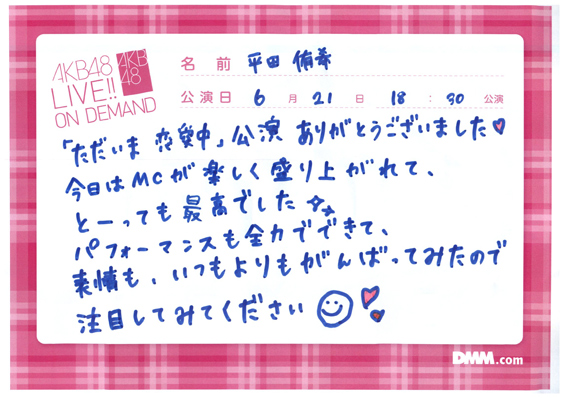 AKB48
LIVE!!
ON DEMAND
AKB
48
名前 平田 侑希
公演日 6月21日 18:30公演
「ただいま 恋愛中」公演 ありがとうございました
今日はMCが楽しく盛り上がれて、
とーっても最高でした
パフォーマンスも全力でできて、
表情も、いつもよりもがんばってみたので
注目してみてください
DMM.com